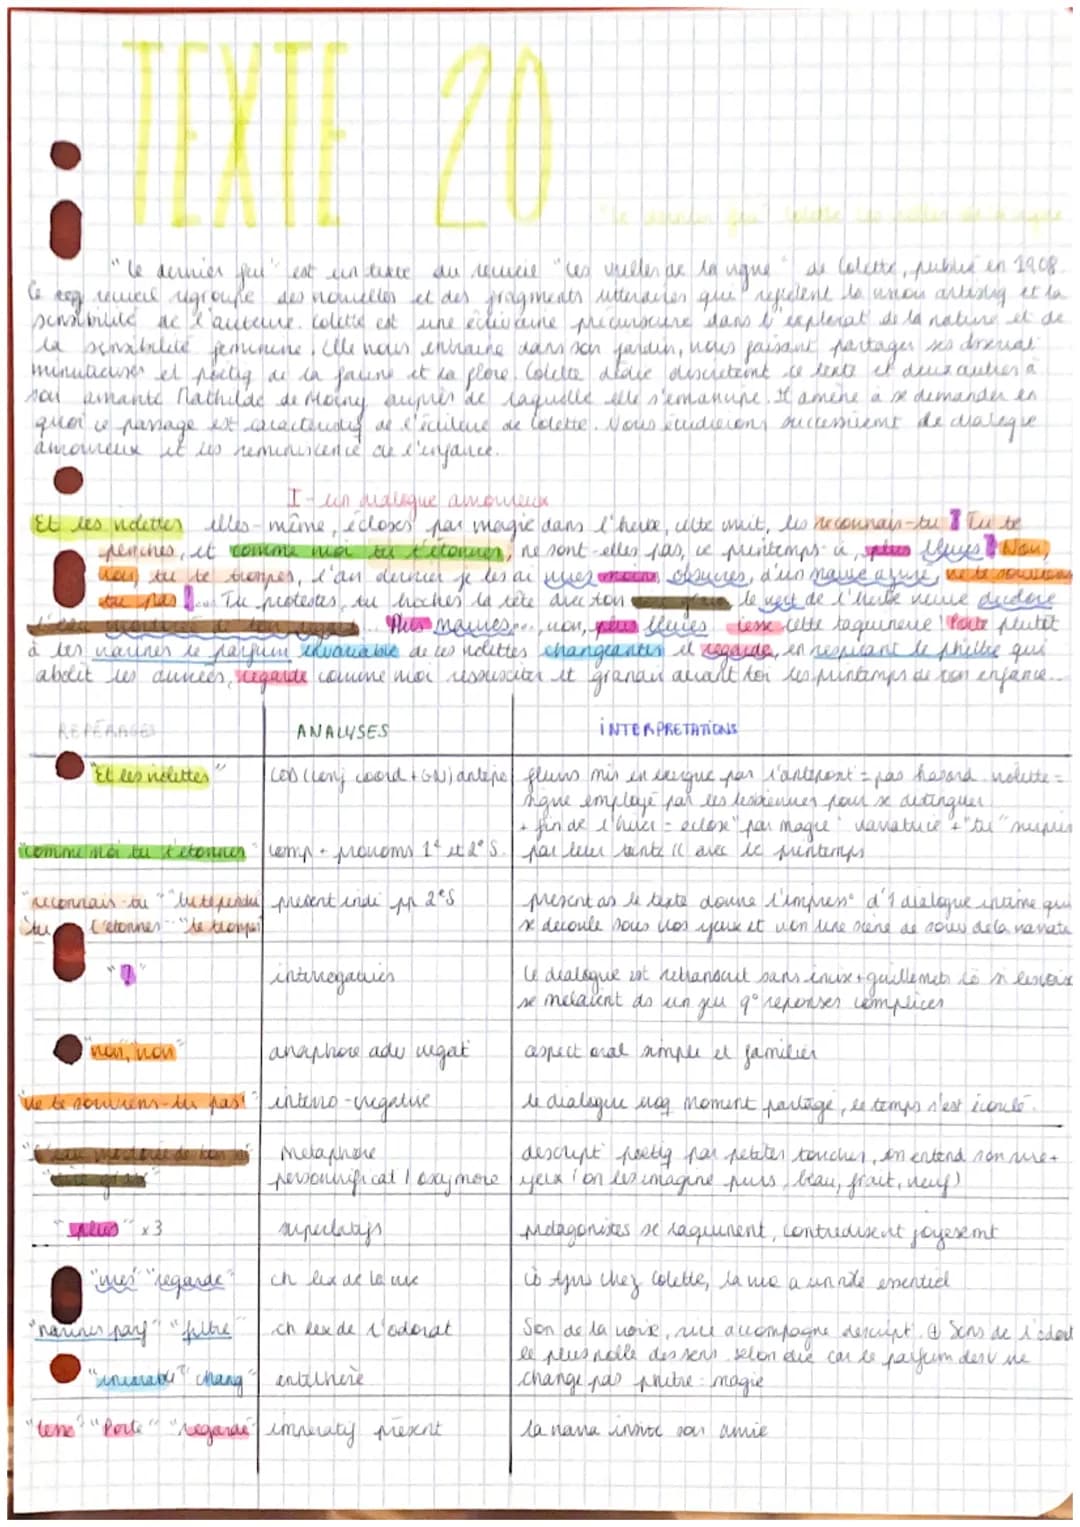 TEXTE 20
"le dernier feu" Colette les vrilles de la vigne
"le dernier feu" est un texte du recueil "les vrilles de la vigne" de Colette, publié en 1908.
Ce recueil regroupe des nouvelles et des fragments littéraires qui reflètent la vision artistiq et la
sensibilité de l'auteure. Colette est une écrivaine précurseure dans l'explorat de la nature et de
la sensibilité féminine. Elle nous entraine dans son jardin, nous faisant partager ses
minutieuses et poétiq de la faune et la flore. Colette dédie discrètemt ce texte et deux autres à
son amante Mathilde de Morny auprès de laquelle elle s'émancipe. Il amène à se demander en
quoi ce passage est caractéristiq de l'écriture de Colette. Nous étudierons successivemt le dialogue
amoureux et les reminiscence de l'enfance.
I - un dialogue amoureux
Et les violettes elles-même, écloses par magie dans l'herbe, cette nuit, les reconnais-tu ? Tu te
penches, et comme moi tu t'étonnes, ne sont-elles pas, ce printemps-ci, plus bleues ? Non,
non, tu te trompes, l'an dernier je les ai vues moins obscures, d'un mauve azuré, ne te souviens
tu pas !... Tu protestes, tu hoches la tête avec ton grave, le vert de l'herbe neuve décolore
l'eau mordorée de ton regard... Plus mauves..., non, plus bleues. Cesse cette taquinerie ! Porte plutôt
à tes narines le parfum invariable de ces violettes changeantes et regarde, en respirant le philtre qui
abolit les années, regarde comme moi ressusciter et grandir devant toi les printemps de ton enfance...
REPÉRAGES ANALYSES INTERPRETATIONS
"Et les violettes" COD (conj coord + GN) antépo fleurs mis en exergue par l'antéposit = pas hasard. violette =
signe employé par les lesbiennes pour se distinguer
+ fin de l'hiver = éclose "par magie" narratrice + "tu" surpris
"comme moi tu t'étonnes" comp + pronoms 1e et 2e S. par leur avec le printemps
"reconnais-tu" "tu te penches" présent indi pp 2e S présent ds le texte donne l'impress° d'1 dialogue intime qui
"tu t'étonnes" "te trompes" se déroule sous nos yeux et non une scène de souv de la narrate
"?" interrogatives le dialogue est retranscrit sans + guillemets
se mêlaient ds un jeu q° réponses complices
"non, non" anaphore adv négat° aspect oral simple et familier
"ne te souviens-tu pas" interro-négative le dialogue moment partagé, le temps s'est écoulé.
"l'eau mordorée de ton" métaphore descript° poétiq par petites touches, on entend son rire +
personnificat / oxymore yeux (on les imagine purs, beau, frait, neuf)
"plus" x3 superlatifs protagonistes se taquinent, contredisent joyeusemt
"vues" "regarde" ch lex de la vue chez Colette, la vue a un rôle essentiel
"narines parf" "filtre" ch lex de l'odorat Son de la voix, rire accompagne descript°. ⊕ Sens de l'odorat
le plus noble des sens selon elle car le parfum ne
"invariable" chang" antithèse change pas philtre = magie
"Cesse" "Porte" "regarde" impératif présent la narra invite son amie